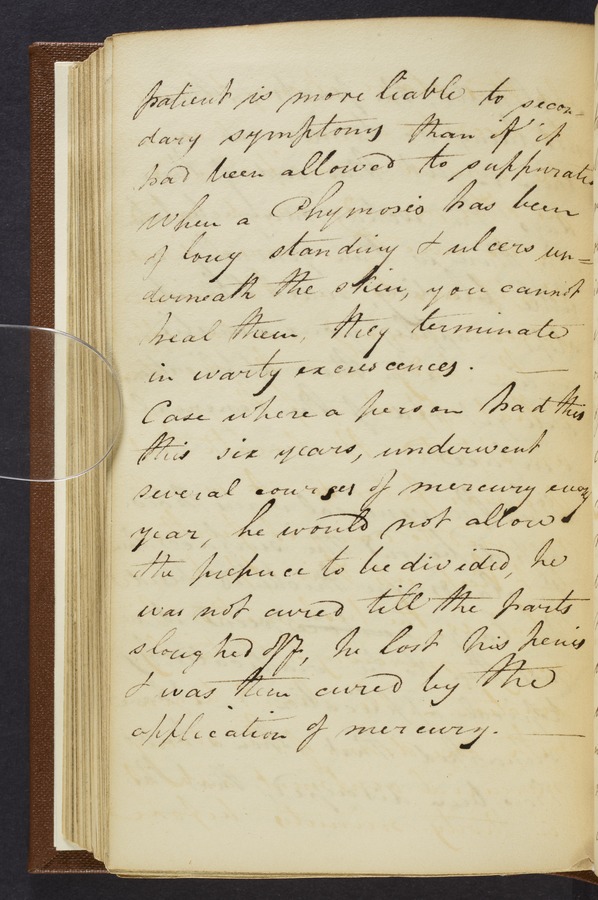 patient is more liable to secon=
dary symptoms than if it
had been allowed to suppurate
When a Phymosis has been
of long standing & ulcers un=
derneath the skin, you cannot
heal them, they terminate
in warty excrescences. —
Case where a person had this
this six years, underwent
several courses of mercury every
year, he would not allow
the prepuce to be divided, he
was not cured till the parts
sloughed off, he lost his penis
& was then cured by the
application of mercury. —